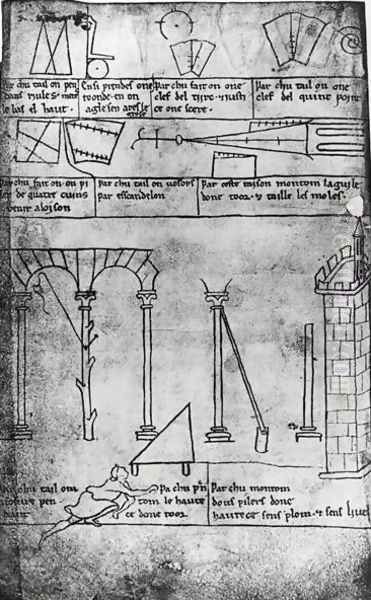 chu tail on pen
dans riules mete
le bas el haut.
Ensi prendes one
roonde en on
agle sen ares le
Par chu fait on one
clef del
ce one scere.
Par chu tail on one
clef del quint point
Par chu fait on on pi
ler de quatre cuins
venir a loison
Par chu tail on vosors
par escandelon
Par ceste raison montom laguile
done toor. & taille les moles.
chu tail om
vosure pen
Pa chu pn
tom le haute
ce done toor
Par chu montom
dous pilers done
hautece sens plom. & sens livel